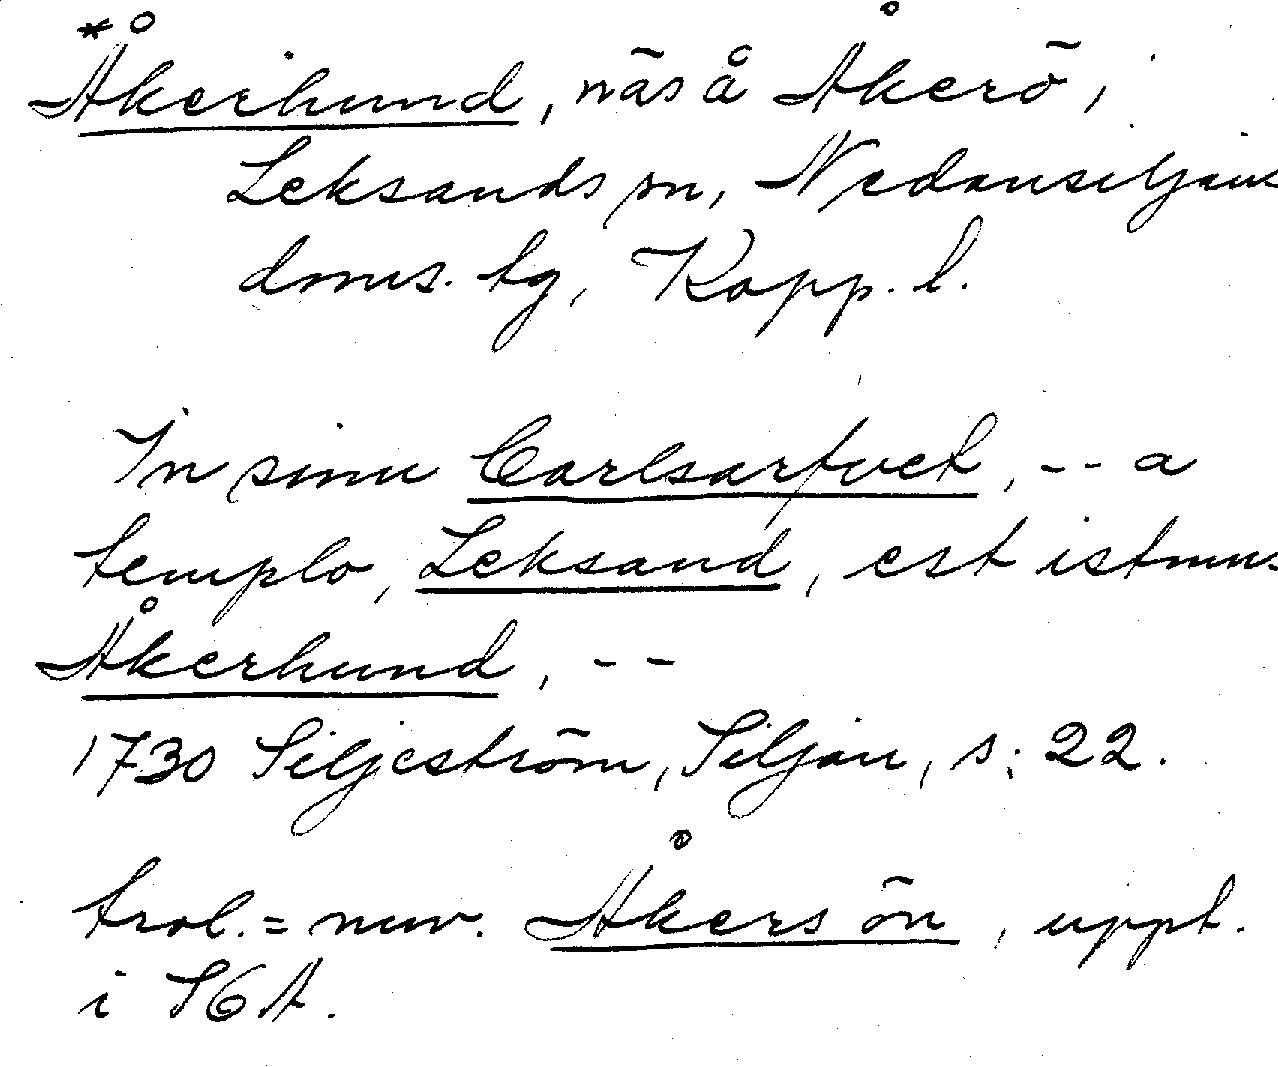 *Åkerhund, näs å Åkerö,
Leksands sn, Nedansiljans
doms. tg, Kopp. l.
In sinu Carlsarfvet, -- a
templo, Leksand, est istmus
Åkerhund, --
1730 Siljeström, Siljan, s: 22.
trol. = nuv. Åkersön, uppt.
i SOA.